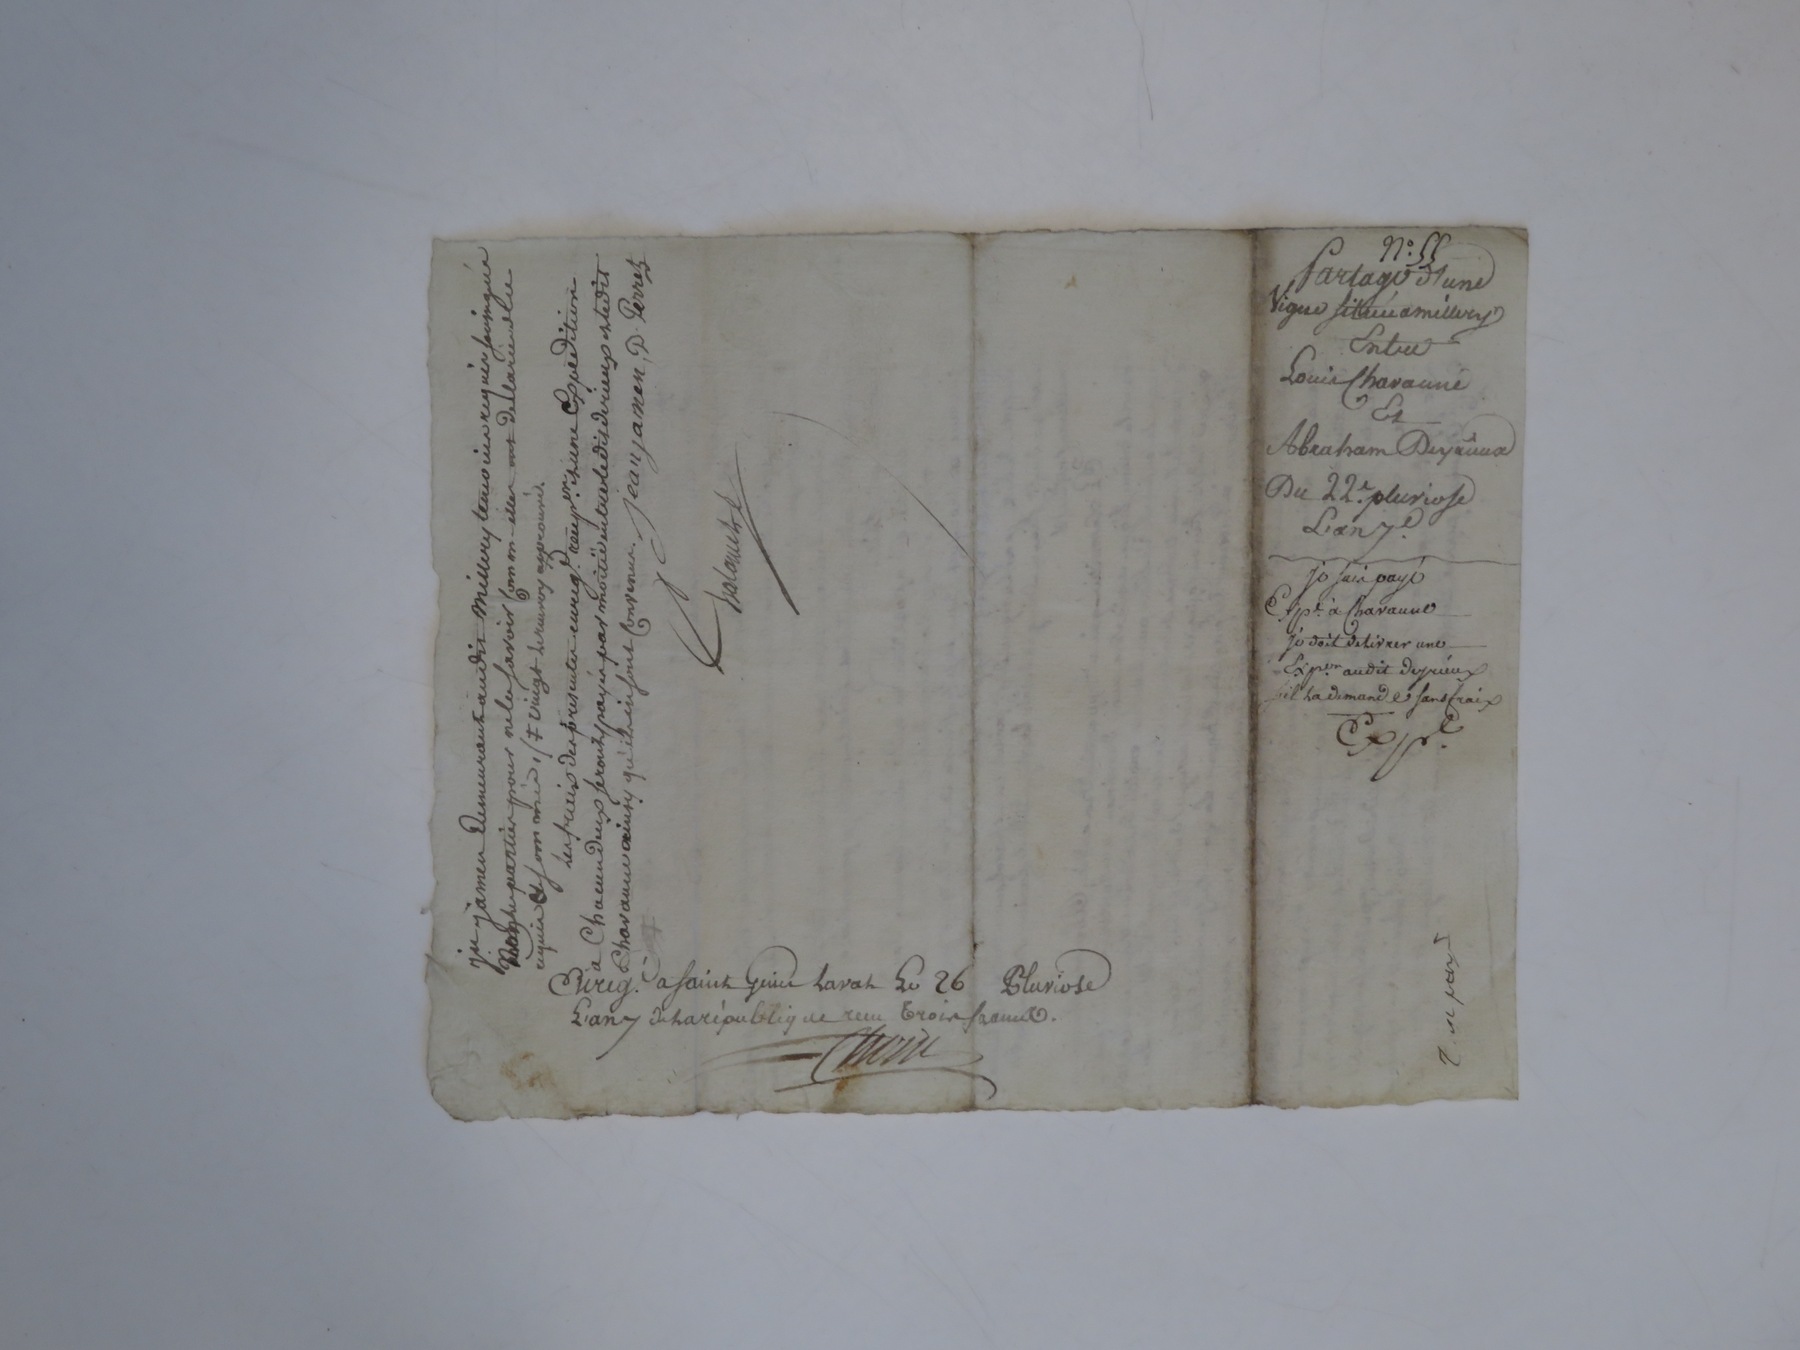 jn jamen demeurant audit Millery temoins requis soussignés
partie pour ne le savoir comme elles ont declaré de ce
requis & sommées, / & vingt
les frais des presentes enreg.t & une Expédition
à Chacun deux seront payés par moitié entre ledit deyrieux et ledit
Chavanne ainsy qu'ils en sont Convenus. jean jamen, P. Perret
Enreg.é a saint Genis laval Le 26 Pluviose
L'an 7 de la république reçu trois francs.
N.o 55
Partage d'une
Vigne située a millery
Entre
Louis Chavanne
Et
Abraham Deyrieux
Du 22.e pluviose
L'an 7.e
je suis payé
Exp.é à Chavanne
je doit delivrer une
Exp.on audit deyrieux
s'il la demande sans fraix
Exp.é